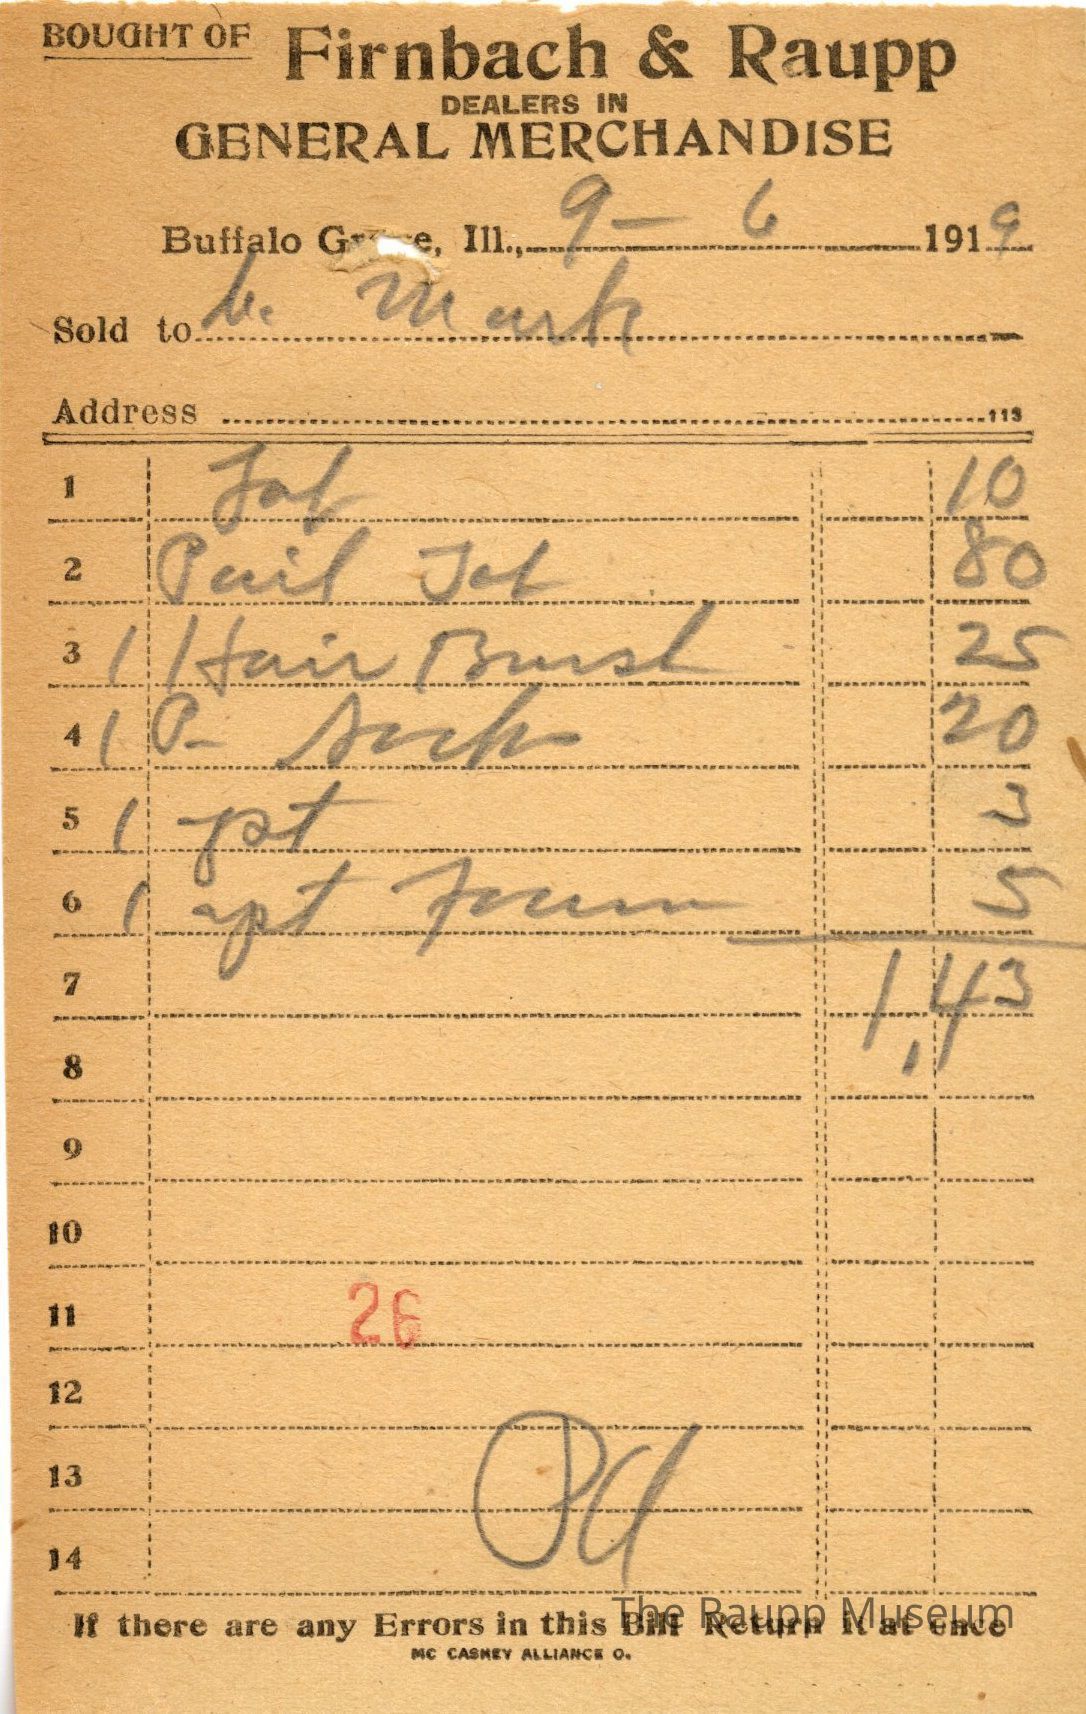 BOUGHT OF Firnbach & Raupp
DEALERS IN
GENERAL MERCHANDISE
Buffalo Gr e, Ill., 9 - 6 1919
Sold to Mark
Address 113
1 Tob 10
2 Pail Tob 80
3 1 Hair Brush 25
4 1 P- Socks 20
5 1 pt 3
6 1 pt 5
7 1,43
8
9
10
11 26
12
13 Pd
14
The Raupp Museum
If there are any Errors in this Bill Return it at once
MC CASKEY ALLIANCE O.